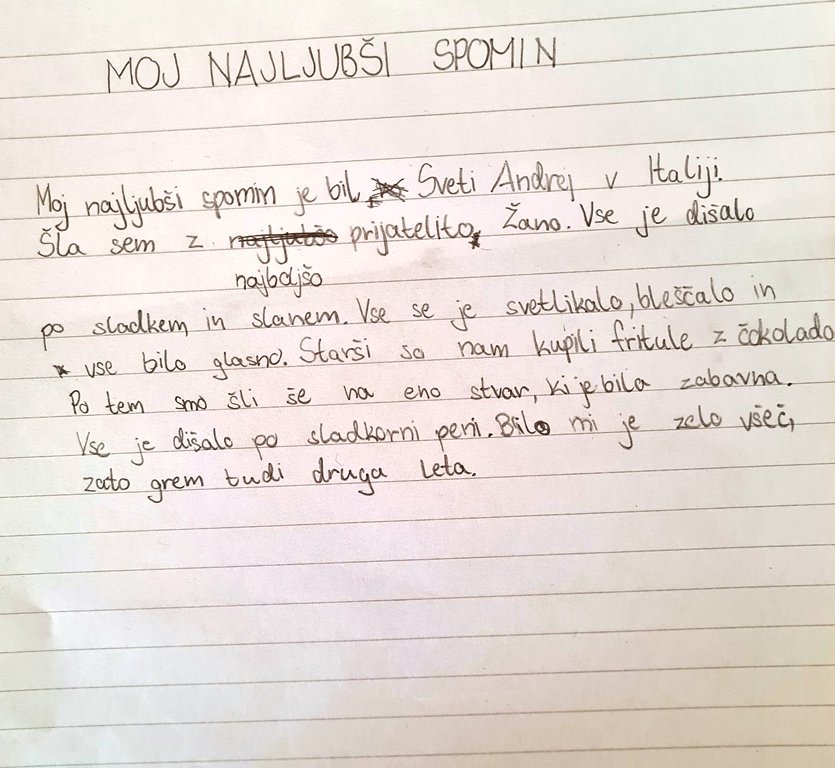 MOJ NAJLJUBŠI SPOMIN
Moj najljubši spomin je bil Sveti Andrej v Italiji.
Šla sem z prijateljico Žano. Vse je dišalo
najboljšo
po sladkem in slanem. Vse se je svetlikalo, bleščalo in
vse bilo glasno. Starši so nam kupili fritule z čokolado
Po tem smo šli še na eno stvar, ki je bila zabavna.
Vse je dišalo po sladkorni peni. Bilo mi je zelo všeč,
zato grem tudi druga leta.